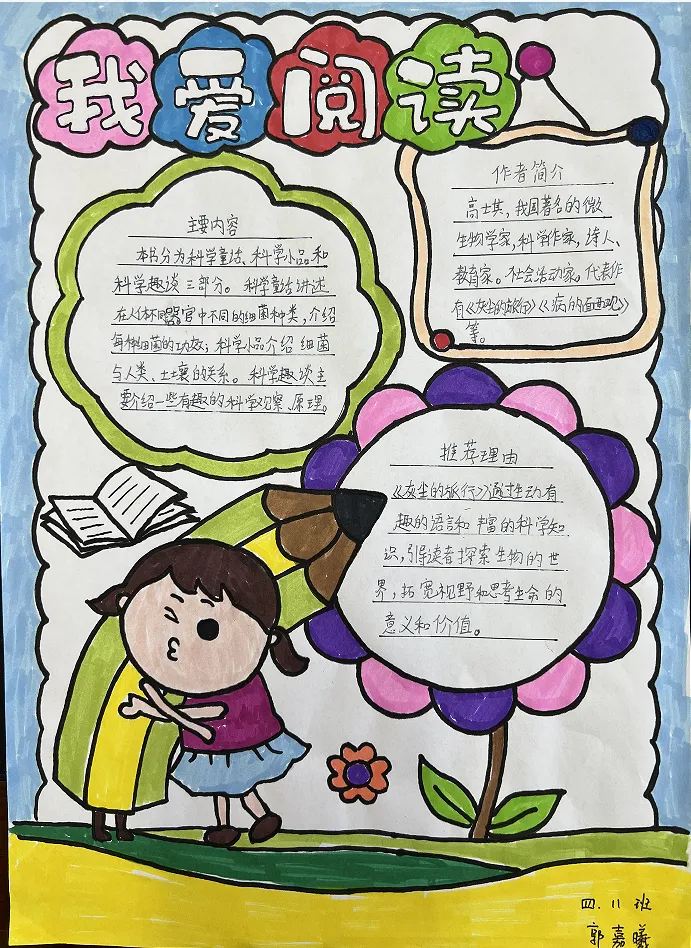 我爱阅读
作者简介
高士其，我国著名的微
生物学家，科学作家，诗人、
教育家。社会活动家。代表作
有《灰尘的旅行》《病的面面观》
等。
主要内容
本书分为科学童话、科学小品和
科学趣谈三部分。科学童话讲述
在人体不同器官中不同的细菌种类，介绍
每种细菌的功效；科学小品介绍细菌
与人类、土壤的关系。科学趣谈主
要介绍一些有趣的科学观察、原理。
推荐理由
《灰尘的旅行》通过生动有
趣的语言和丰富的科学知
识，引导读者探索生物的世
界，拓宽视野和思考生命的
意义和价值。
四.11班
郭嘉曦